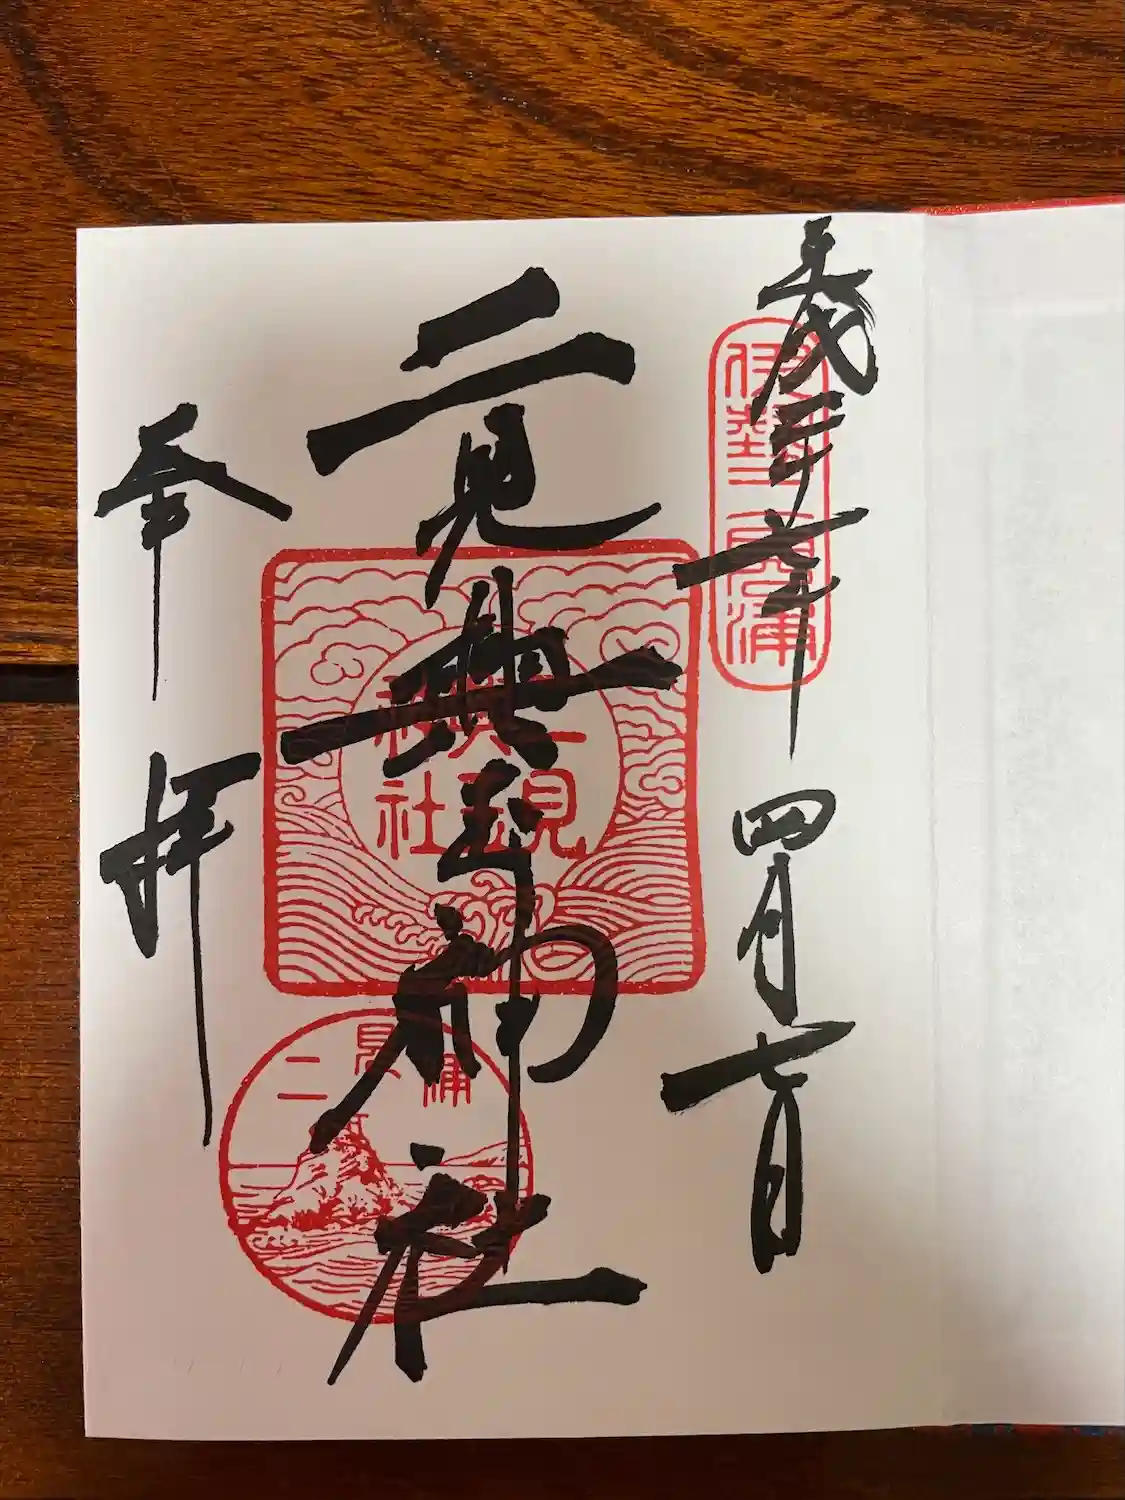 平成三十年四月七日
伊勢二見浦
二見興玉神社
二見興玉神社
二見浦
奉拝